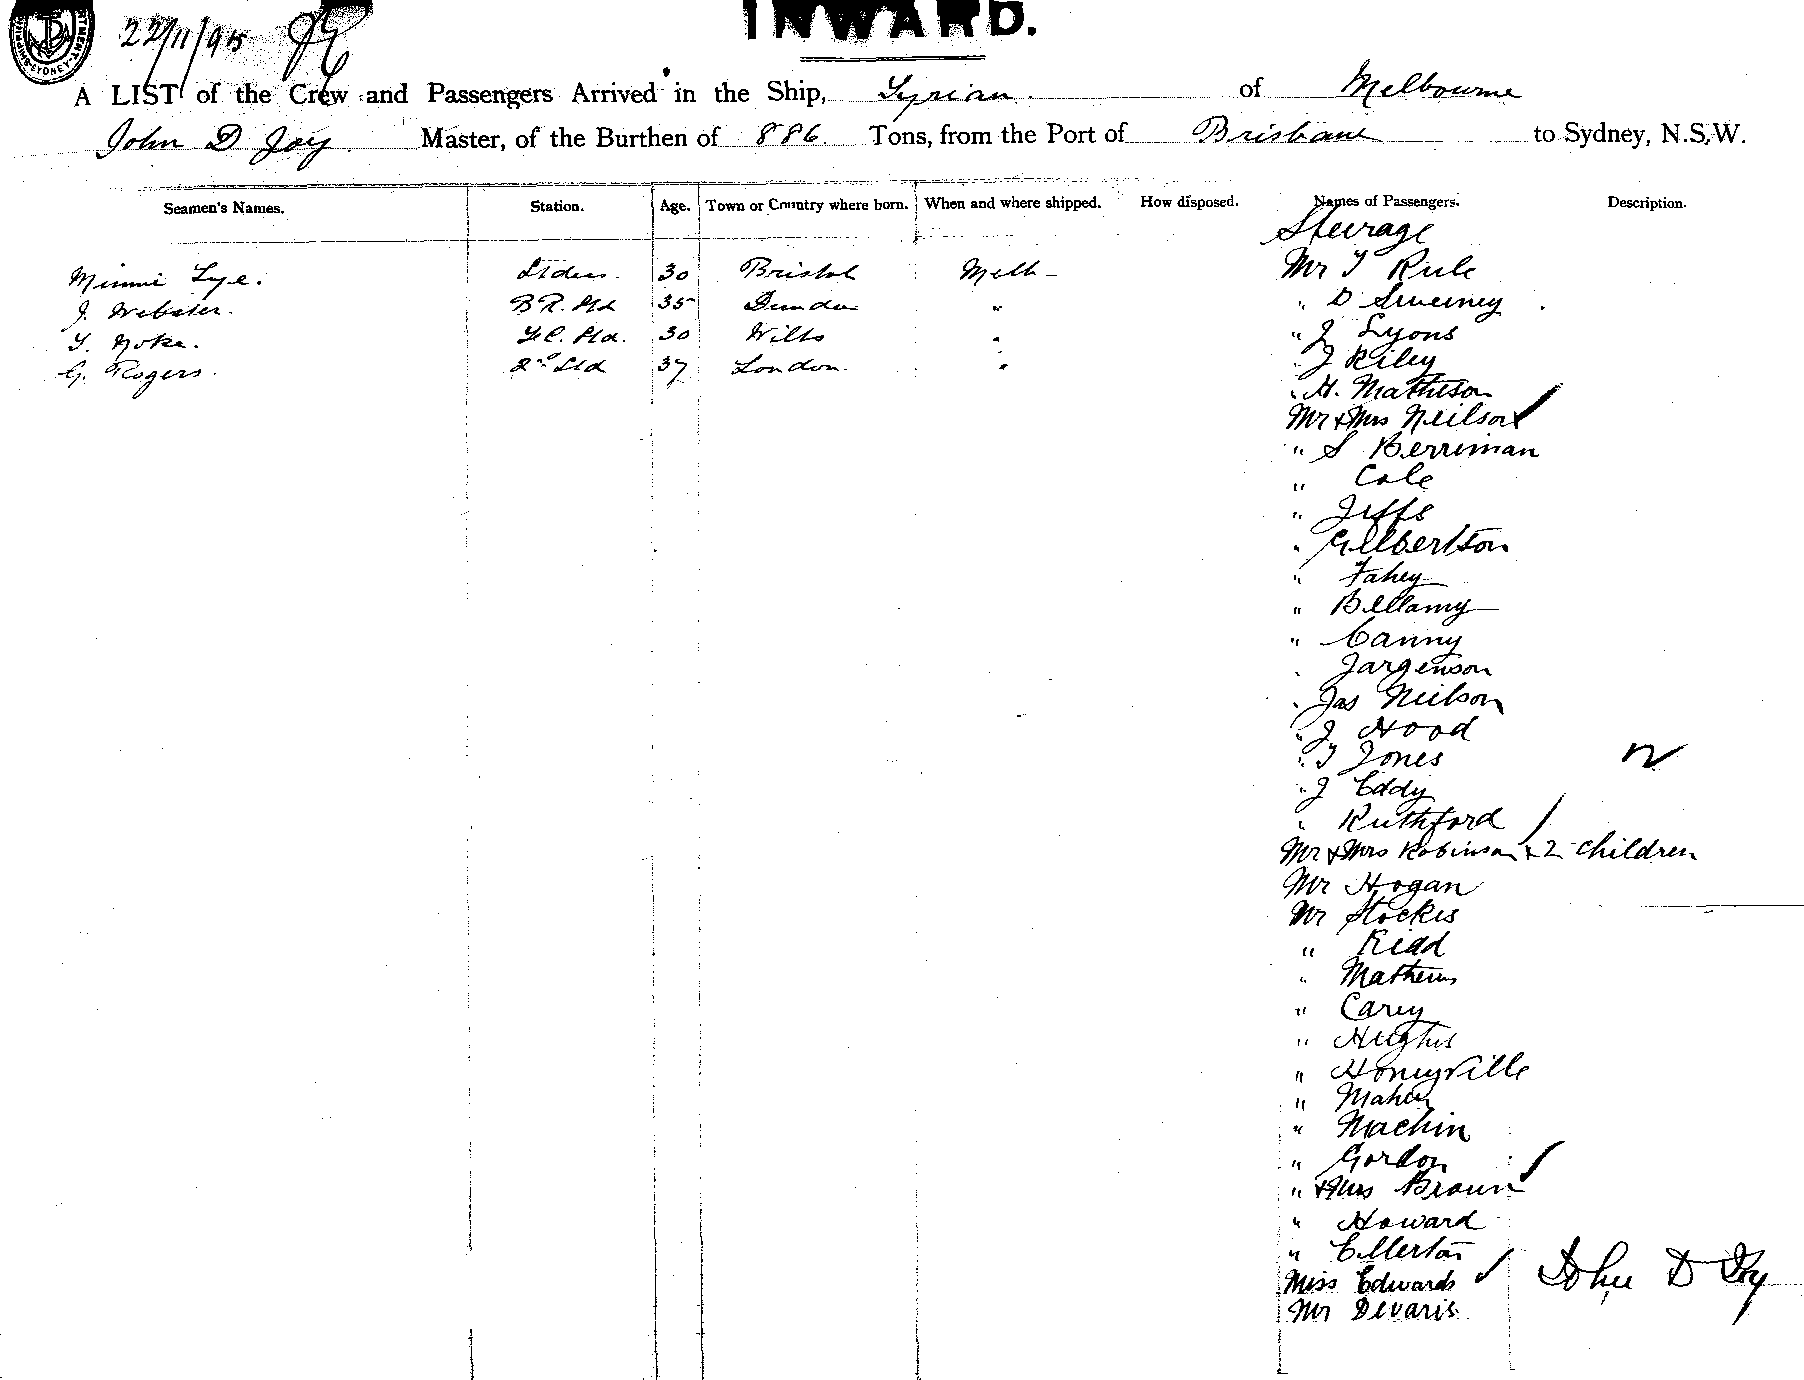 22/11/95
INWARD.
A LIST of the Crew and Passengers Arrived in the Ship, Syrian of Melbourne
John D Joy Master, of the Burthen of 886 Tons, from the Port of Brisbane to Sydney, N.S.W.
Seamen's Names. Station. Age. Town or Country where born. When and where shipped. How disposed. Names of Passengers. Description.
Steerage
Minnie Lye. Stdess. 30 Bristol Melb- Mr T Rule
J. Webster. B.R. Std 35 Dundee " " D Sweeney
T. Noke. F.C. Std. 30 Wilts " " J Lyons
G. Rogers. 2nd Std 37 London " " J Riley
" H. Matheson
Mr & Mrs Neilson
" S Berriman
" Cole
" Jeffs
" Gilbertson
" Fahey
" Bellamy
" Canny
" Jargenson
" Jas Neilson
" J Hood
" T Jones
" J Eddy
" Ruthford
Mr & Mrs Robinson & 2 children
Mr Hogan
Mr Stockes
" Kidd
" Mathews
" Carey
" Hughes
" Honeyville
" Maher
" Machin
" Gordon
" & Mrs Brown
" Howard
" Ellerton
Miss Edwards John D Joy
Mr Devaris